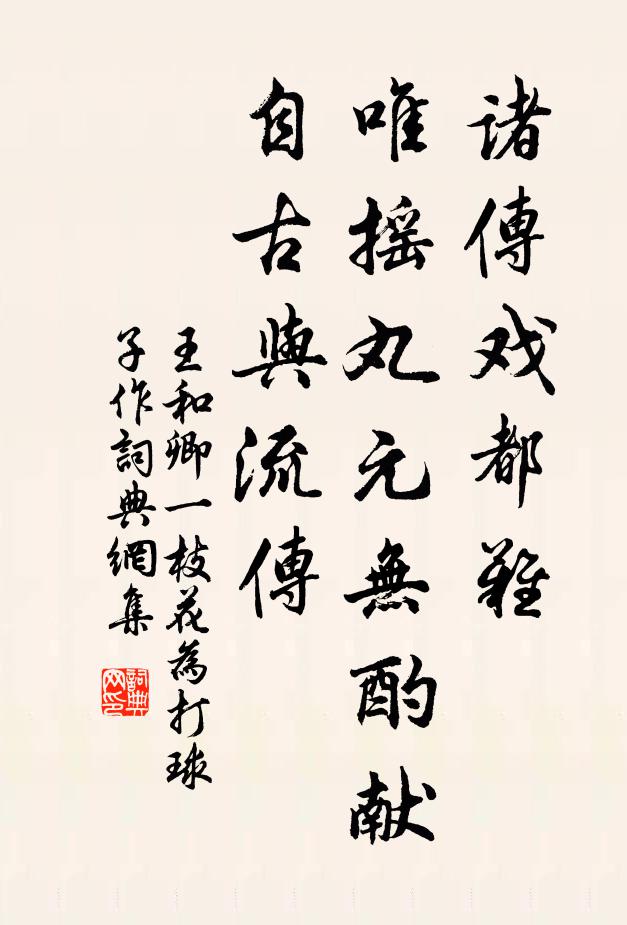 諸傳戏都難
唯摇丸元無酌献
自古與流傳
王和卿一枝花為打球
子作詞典網集
詞典網印